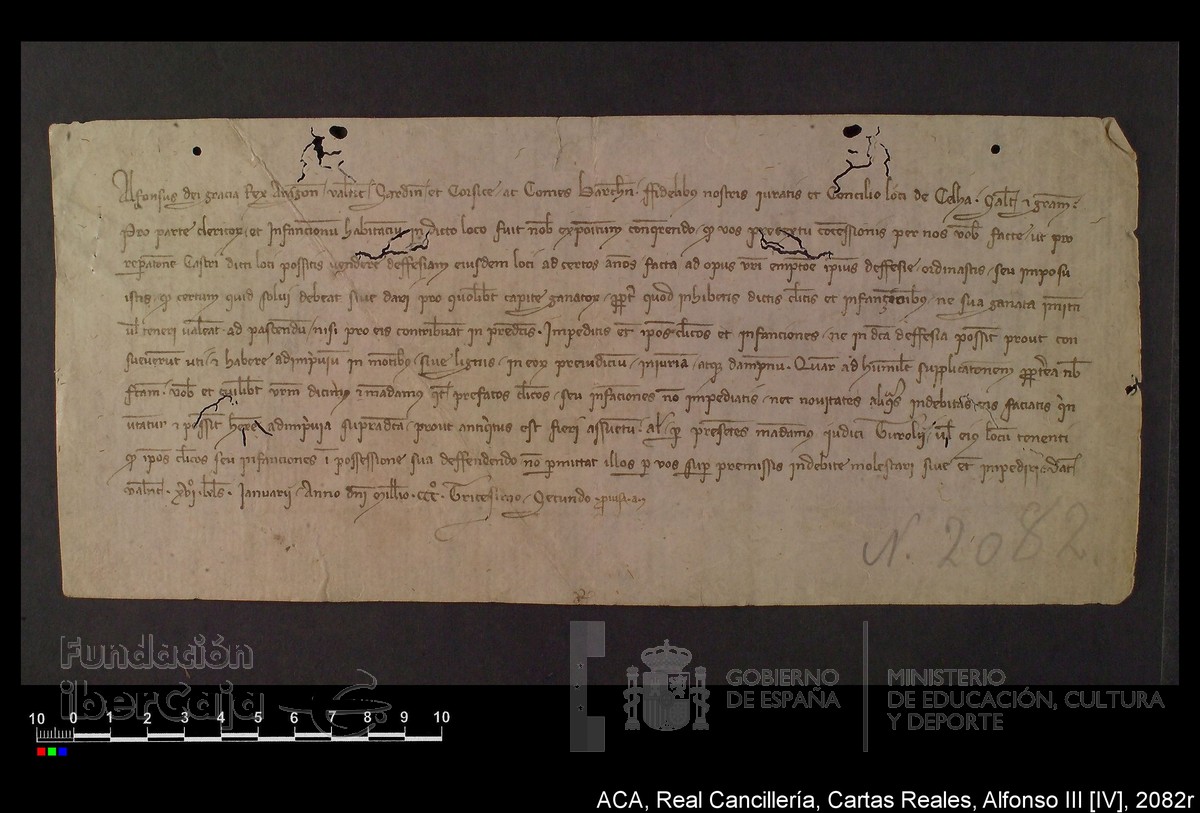 Alfonsus dei gracia Rex Aragon Valencie Sardin et Corsice ac Comes Barchn. Fidelibus nostris iuratis et Concilio loci de Celha. Salt et gram.
Pro parte clericor et Infancionu habitanciu in dicto loco fuit nob expositum conquerendo q vos pretextu concessionis per nos vob facte ut pro
repatione Castri dicti loci possitis vendere deffesiam eiusdem loci ad certos annos facta ad opus vri emptoe ipius deffesie ordinastis seu imposu
istis q certum quid solui debeat sive dari pro quolibt capite ganator ppt quod inhibetis dictis clicis et infancionibus ne sua ganata
vl teneri valeat ad pascendu nisi pro eis contribuat in predcis. Impeditis et ipos clicos et infanciones ne in dca deffesia possit prout con
sueverut uti et habere adimpiuiu in motibo sive lignis in eor preiudiciu injuria atqz dampnu. Quar ad humilt supplicationem ppterea nob
fcam. vob et cuilibt vrm dicim et madamo qt prefatos clicos seu infaciones no impediatis nec novitates aliqs indebitas eis faciatis qin
utatur et possit adimpiuia supradca prout antiqitus est fieri assuetu. al p presetes madamo iudici Turolii vl eio locu tenenti
q ipos clicos seu infanciones i possessione sua deffendendo no pmittat illos p vos sup premissis indebite molestari sive et impediri. Dat
Valnc. XVIo. kls. Januarii Anno dni Millio. CCCo. Tricesimo Secundo
N. 2082.
Fundación
iberCaja
GOBIERNO
DE ESPAÑA
MINISTERIO
DE EDUCACIÓN, CULTURA
Y DEPORTE
10 0 1 2 3 4 5 6 7 8 9 10
ACA, Real Cancillería, Cartas Reales, Alfonso III [IV], 2082r